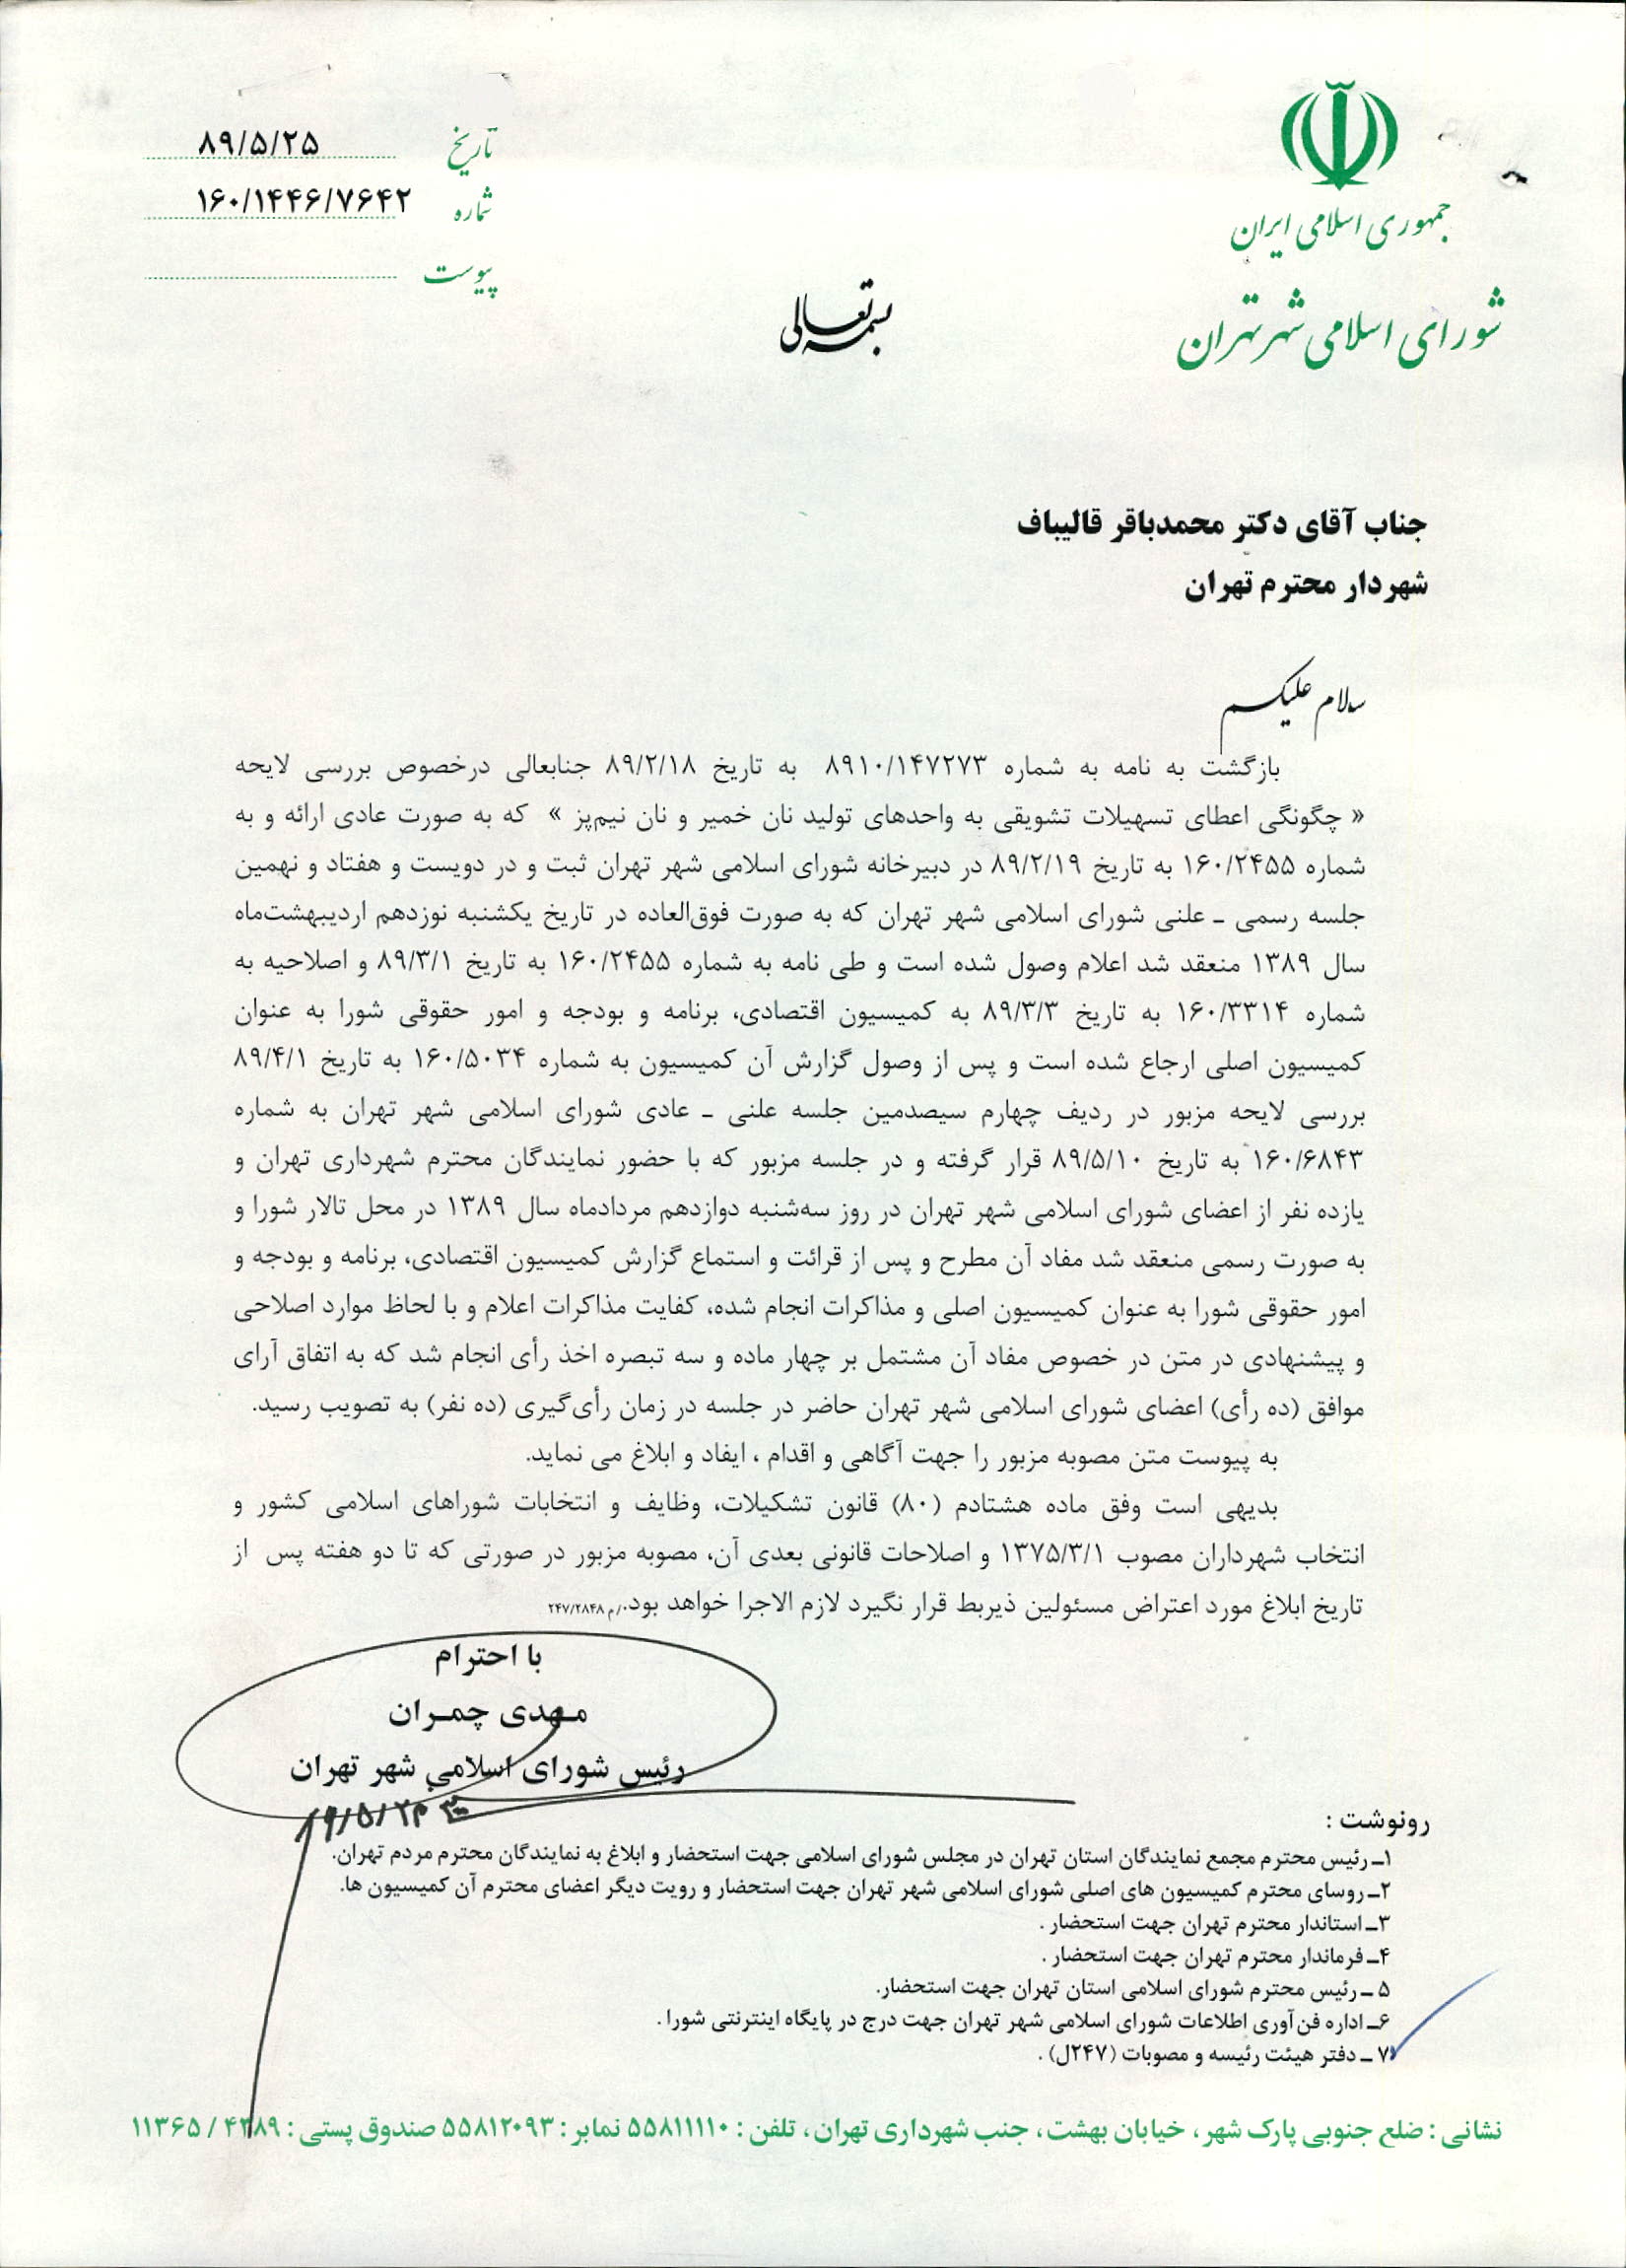 جمهوری اسلامی ایران
شورای اسلامی شهر تهران
تاریخ ۸۹/۵/۲۵
شماره ۱۶۰/۱۴۴۶/۷۶۴۲
پیوست
بسمه تعالی
جناب آقای دکتر محمدباقر قالیباف
شهردار محترم تهران
سلام علیکم
بازگشت به نامه به شماره ۸۹۱۰/۱۴۷۲۷۳ به تاریخ ۸۹/۲/۱۸ جنابعالی درخصوص بررسی لایحه
« چگونگی اعطای تسهیلات تشویقی به واحدهای تولید نان خمیر و نان نیم‌پز » که به صورت عادی ارائه و به
شماره ۱۶۰/۲۴۵۵ به تاریخ ۸۹/۲/۱۹ در دبیرخانه شورای اسلامی شهر تهران ثبت و در دویست و هفتاد و نهمین
جلسه رسمی ـ علنی شورای اسلامی شهر تهران که به صورت فوق‌العاده در تاریخ یکشنبه نوزدهم اردیبهشت‌ماه
سال ۱۳۸۹ منعقد شد اعلام وصول شده است و طی نامه به شماره ۱۶۰/۲۴۵۵ به تاریخ ۸۹/۳/۱ و اصلاحیه به
شماره ۱۶۰/۳۳۱۴ به تاریخ ۸۹/۳/۳ به کمیسیون اقتصادی، برنامه و بودجه و امور حقوقی شورا به عنوان
کمیسیون اصلی ارجاع شده است و پس از وصول گزارش آن کمیسیون به شماره ۱۶۰/۵۰۳۴ به تاریخ ۸۹/۴/۱
بررسی لایحه مزبور در ردیف چهارم سیصدمین جلسه علنی ـ عادی شورای اسلامی شهر تهران به شماره
۱۶۰/۶۸۴۳ به تاریخ ۸۹/۵/۱۰ قرار گرفته و در جلسه مزبور که با حضور نمایندگان محترم شهرداری تهران و
یازده نفر از اعضای شورای اسلامی شهر تهران در روز سه‌شنبه دوازدهم مردادماه سال ۱۳۸۹ در محل تالار شورا و
به صورت رسمی منعقد شد مفاد آن مطرح و پس از قرائت و استماع گزارش کمیسیون اقتصادی، برنامه و بودجه و
امور حقوقی شورا به عنوان کمیسیون اصلی و مذاکرات انجام شده، کفایت مذاکرات اعلام و با لحاظ موارد اصلاحی
و پیشنهادی در متن در خصوص مفاد آن مشتمل بر چهار ماده و سه تبصره اخذ رأی انجام شد که به اتفاق آرای
موافق (ده رأی) اعضای شورای اسلامی شهر تهران حاضر در جلسه در زمان رأی‌گیری (ده نفر) به تصویب رسید.
به پیوست متن مصوبه مزبور را جهت آگاهی و اقدام ، ایفاد و ابلاغ می نماید.
بدیهی است وفق ماده هشتادم (۸۰) قانون تشکیلات، وظایف و انتخابات شوراهای اسلامی کشور و
انتخاب شهرداران مصوب ۱۳۷۵/۳/۱ و اصلاحات قانونی بعدی آن، مصوبه مزبور در صورتی که تا دو هفته پس از
تاریخ ابلاغ مورد اعتراض مسئولین ذیربط قرار نگیرد لازم الاجرا خواهد بود./م ۲۴۷/۲۸۴۸
با احترام
مهدی چمران
رئیس شورای اسلامی شهر تهران
رونوشت :
۱ـ رئیس محترم مجمع نمایندگان استان تهران در مجلس شورای اسلامی جهت استحضار و ابلاغ به نمایندگان محترم مردم تهران.
۲ـ روسای محترم کمیسیون های اصلی شورای اسلامی شهر تهران جهت استحضار و رویت دیگر اعضای محترم آن کمیسیون ها.
۳ـ استاندار محترم تهران جهت استحضار .
۴ـ فرماندار محترم تهران جهت استحضار .
۵ ـ رئیس محترم شورای اسلامی استان تهران جهت استحضار.
۶ـ اداره فن‌آوری اطلاعات شورای اسلامی شهر تهران جهت درج در پایگاه اینترنتی شورا .
۷ ـ دفتر هیئت رئیسه و مصوبات (۲۴۷ل) .
نشانی : ضلع جنوبی پارک شهر ، خیابان بهشت ، جنب شهرداری تهران ، تلفن : ۵۵۸۱۱۱۱۰ نمابر : ۵۵۸۱۲۰۹۳ صندوق پستی : ۴۳۸۹ / ۱۱۳۶۵